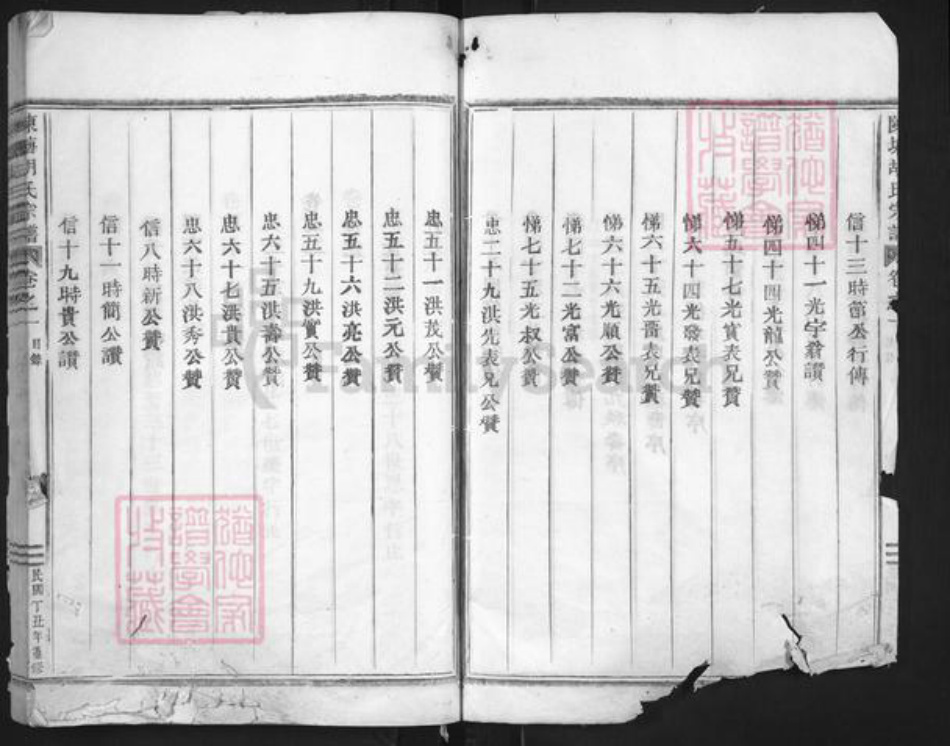 信十三時節公行傳
悌四十一光宇翁讚
悌四十四光龍公贊
悌五十七光實表兄贊
悌六十四光發表兄贊
悌六十五光晋表兄贊
悌六十六光順公贊
悌七十二光富公贊
悌七十五光叔公贊
忠二十九洪先表兄公贊
忠五十一洪茂公贊
忠五十二洪元公贊
忠五十六洪亮公贊
忠五十九洪賓公贊
忠六十五洪壽公贊
忠六十七洪貴公贊
忠六十八洪秀公贊
信八時新公贊
信十一時簡公讚
信十九時貴公讚
胡氏宗譜 卷之一 目錄
民國丁丑年重
譜學會
收藏
FamilySearch